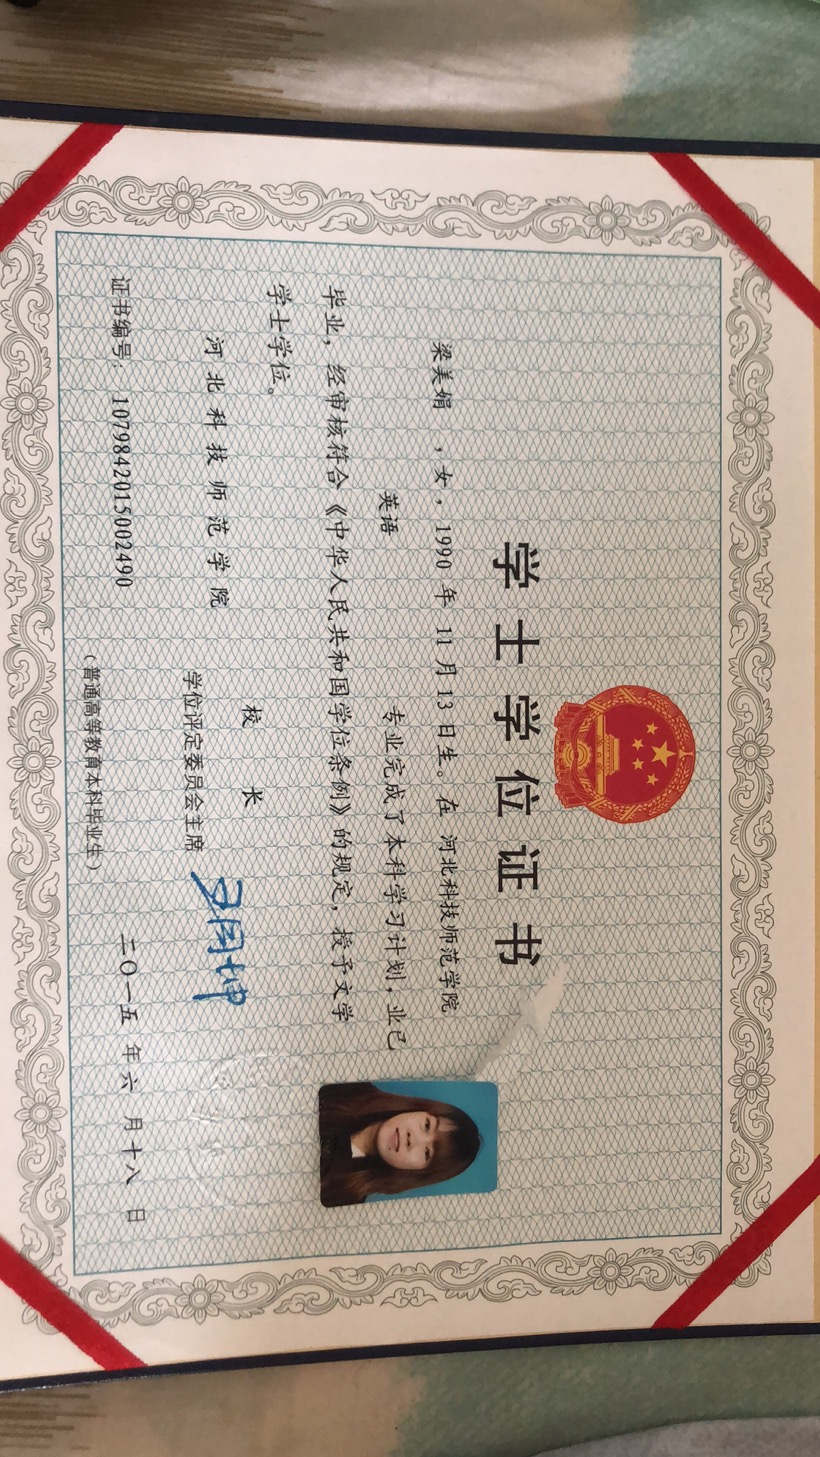 学士学位证书
梁美娟 ，女，1990 年 11 月 13 日生。在 河北科技师范学院
英语 专业完成了本科学习计划，业已
毕业，经审核符合《中华人民共和国学位条例》的规定，授予文学
学士学位。
河北科技师范学院
校 长
学位评定委员会主席
证书编号：1079842015002490
二〇一五 年 六 月 十八 日
（普通高等教育本科毕业生）